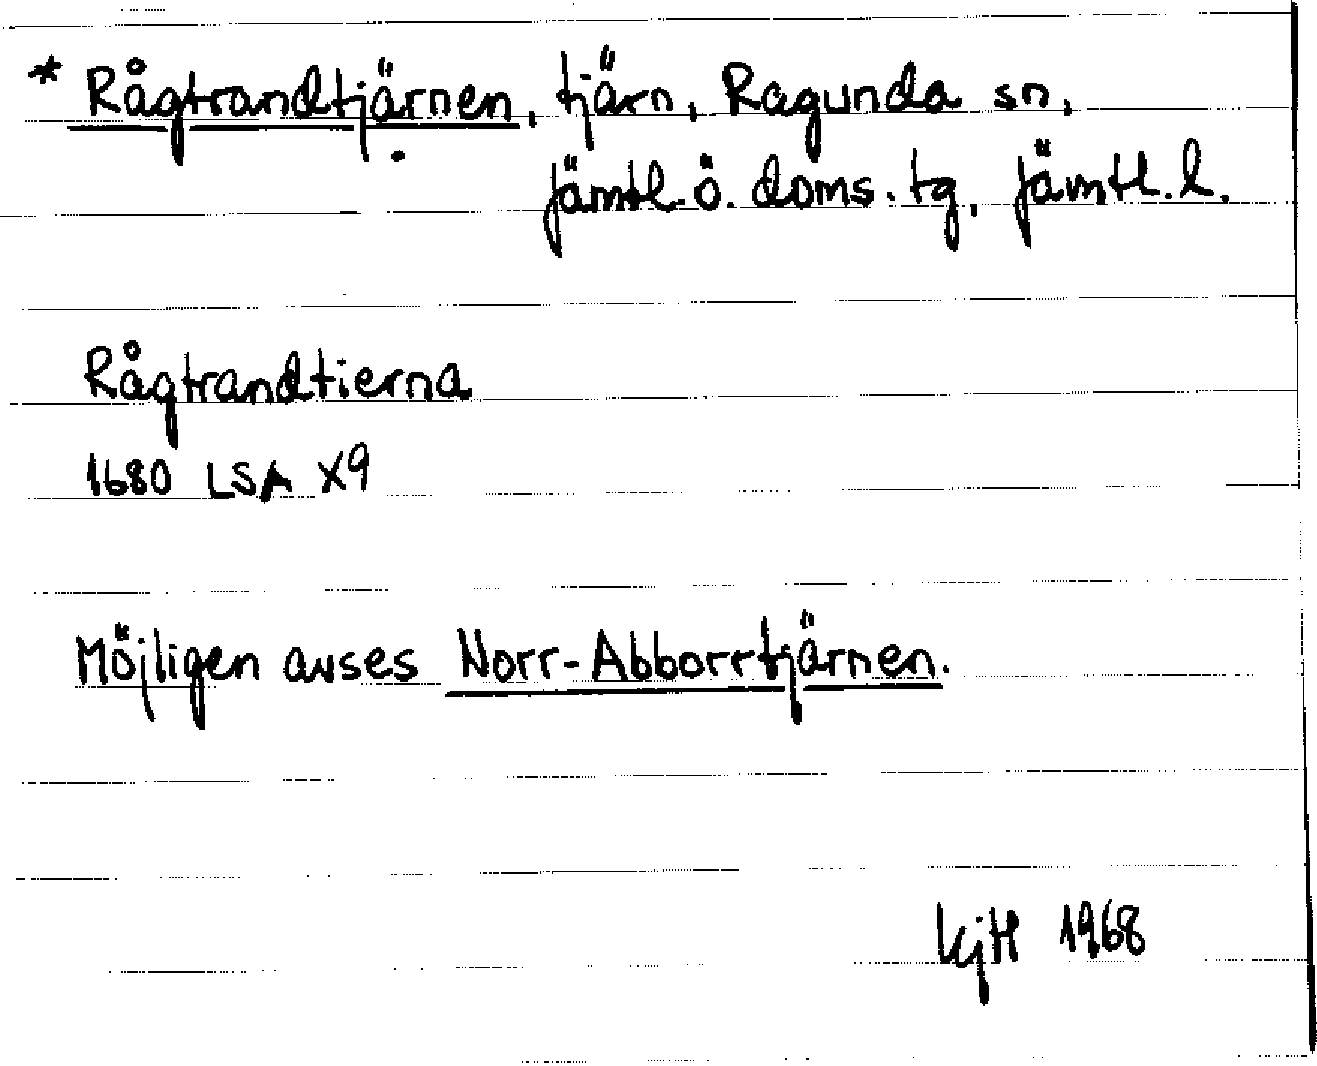 * Rågtrandtjärnen, tjärn, Ragunda sn,
Jämtl. ö. doms. tg, Jämtl. l.
Rågtrandtierna
1680 LSA X9
Möjligen avses Norr-Abborrtjärnen.
KjH 1968